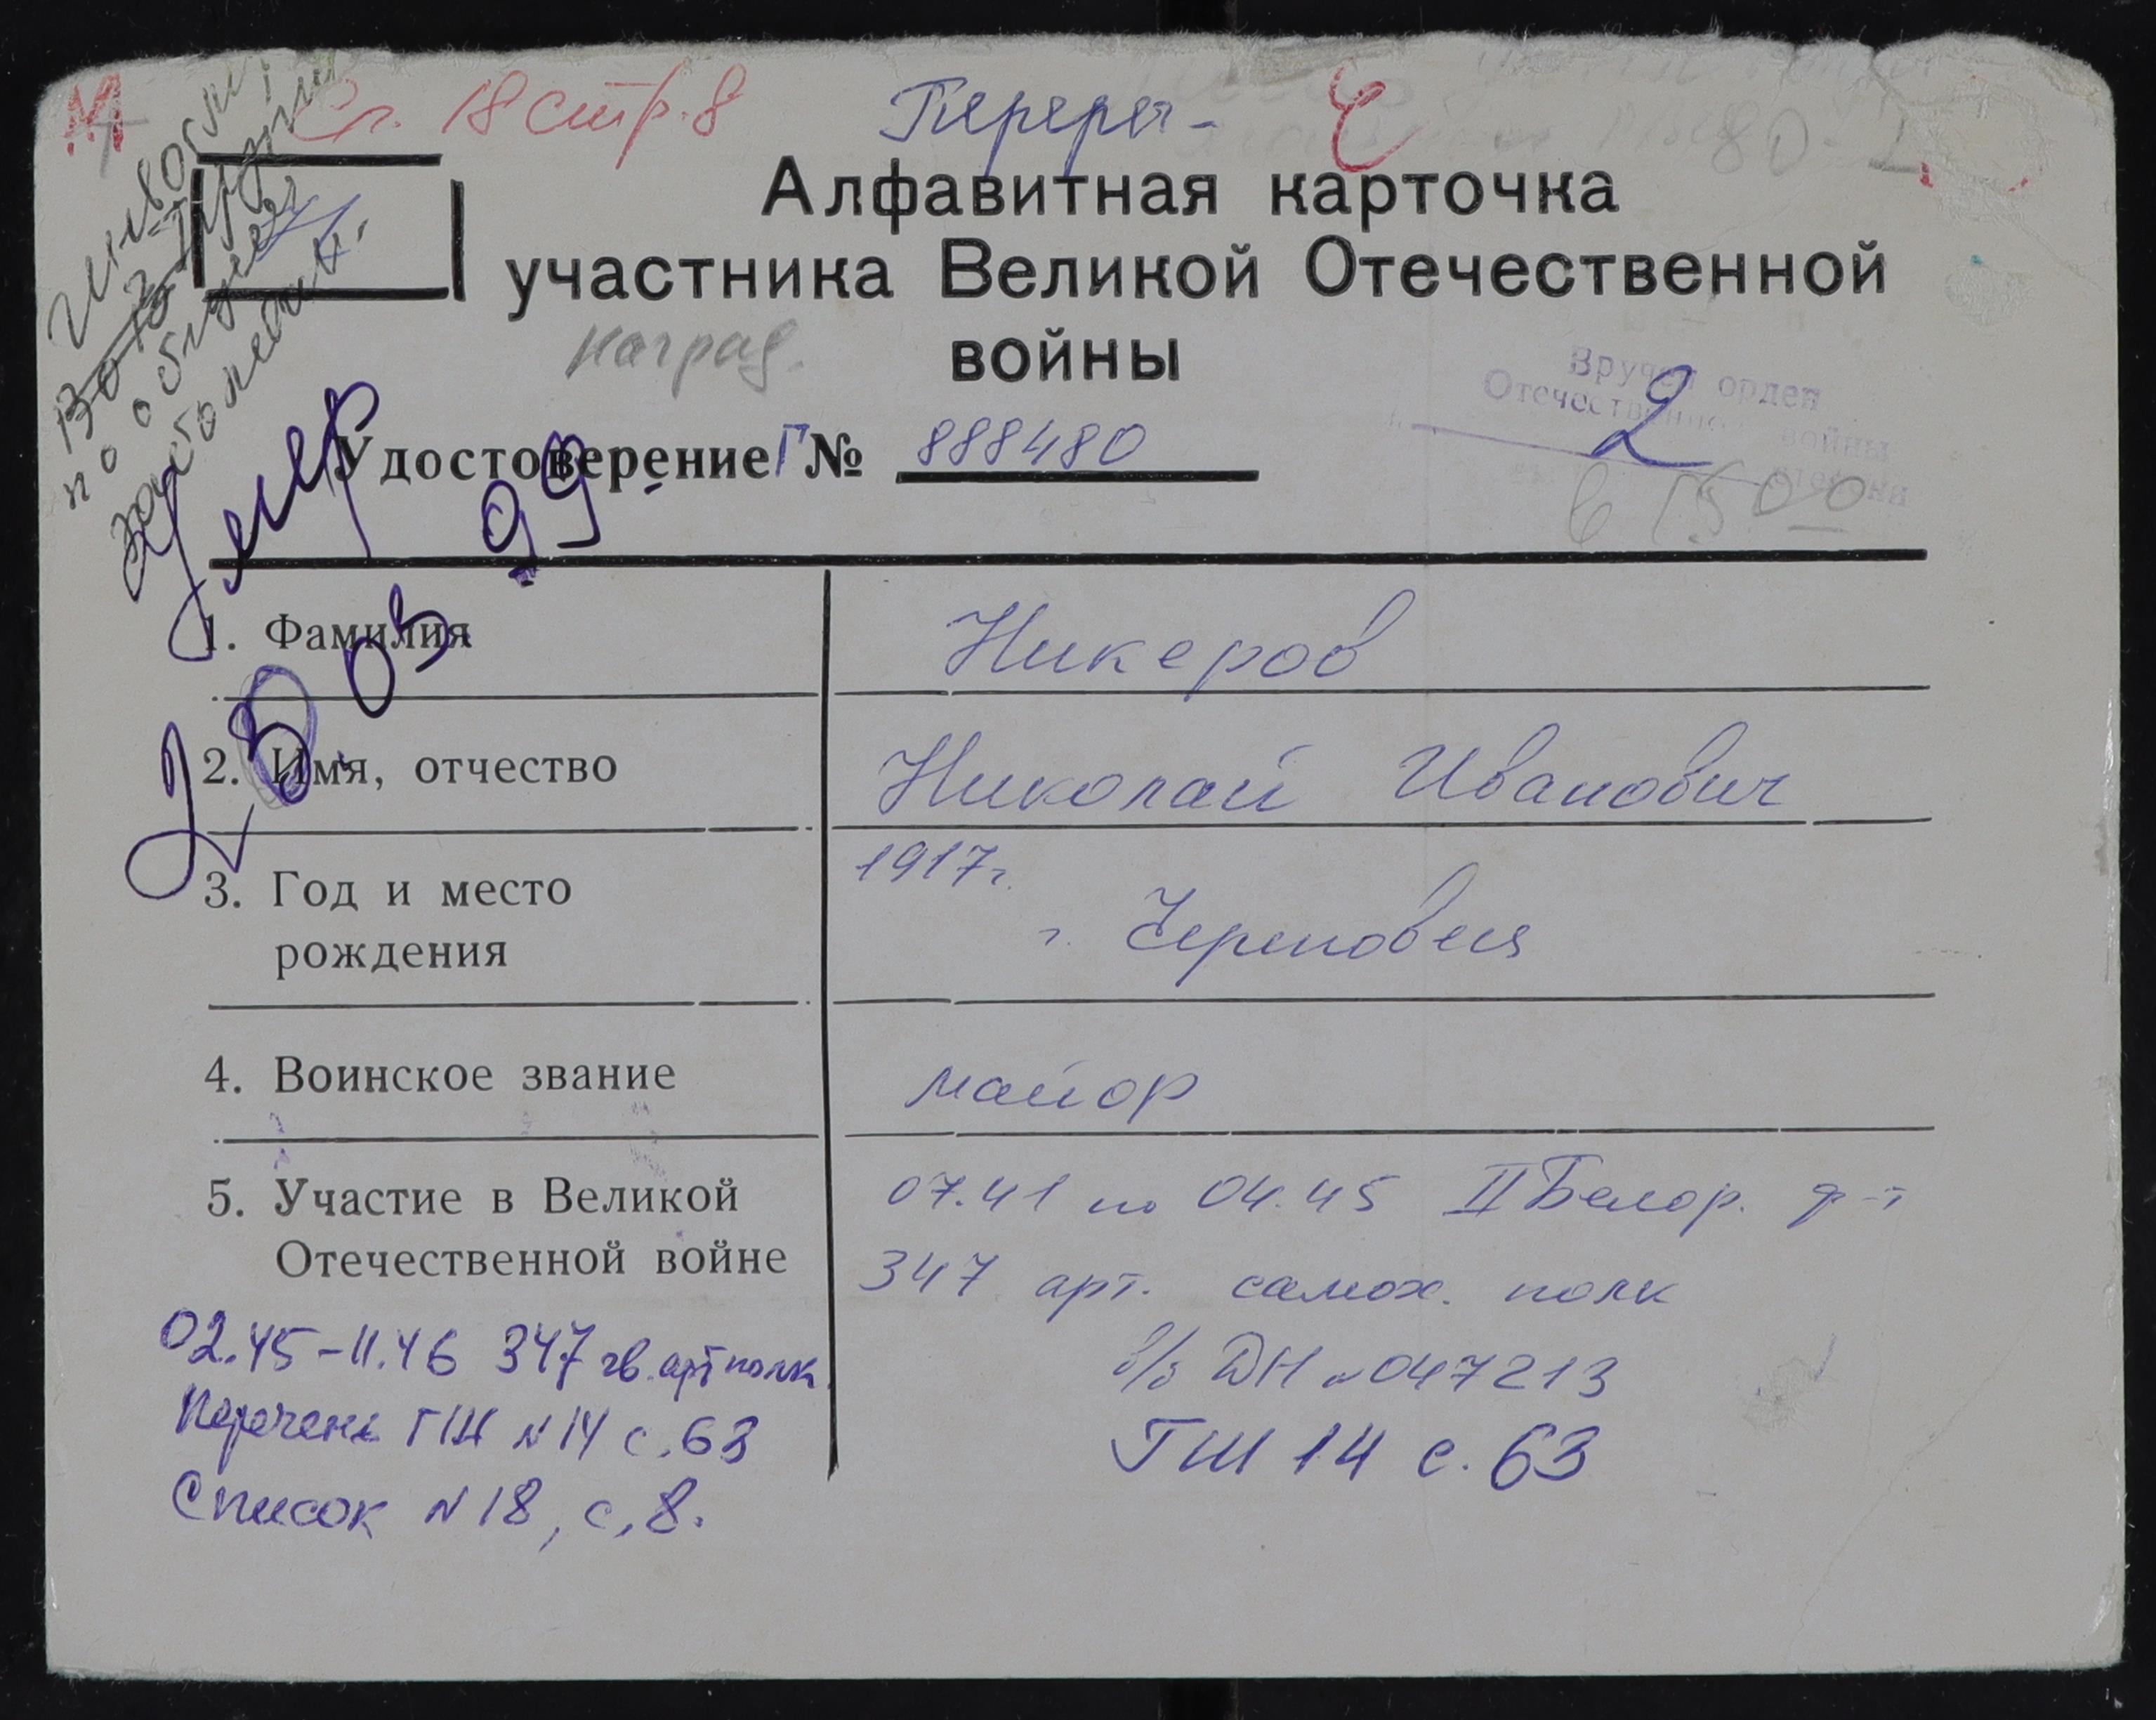 М
Сп. 18 стр. 8
Перерег-
Инвалид
2 группы
по общему
заболеван.
Алфавитная карточка
участника Великой Отечественной
войны
наград.
Вручен орден
Отечественной войны
2 степени
Удостоверение Г № 888480
Умер
28.03.99
1. Фамилия Никеров
2. Имя, отчество Николай Иванович
3. Год и место рождения 1917г.
г. Череповец
4. Воинское звание майор
5. Участие в Великой Отечественной войне 07.41 по 04.45 II Белор. ф-т
347 арт. самох. полк
в/з ДН №047213
ГШ 14 с. 63
02.45-11.46 347 гв. арт полк
Перечень ГШ №14 с. 63
Список №18, с, 8.